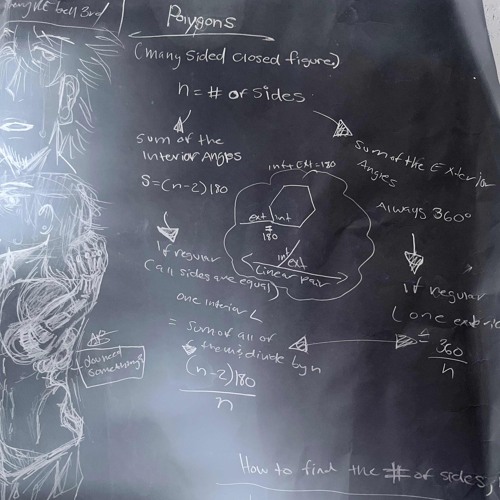 bell 3rd
Polygons
(many sided closed figure)
n = # of sides
sum of the
Interior Angles
S = (n-2)180
If regular
(all sides are equal)
one interior L
= sum of all of
them; divide by n
(n-2)180
n
int + Ext = 180
ext int
=
180
int ext
Linear pair
sum of the Exterior
Angles
Always 360°
If regular
one exterior
=
360
n
AB
something?
How to find the # of sides,